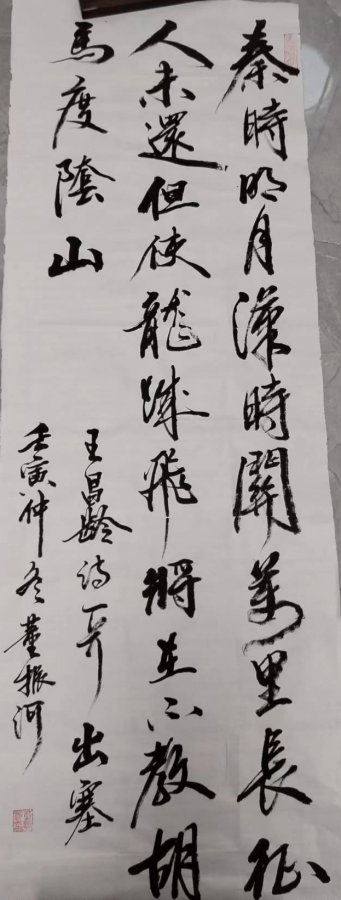 秦時明月漢時關萬里長征
人未還但使龍城飛將在不教胡
馬度陰山
王昌龄诗一首出塞
壬寅仲冬董振河